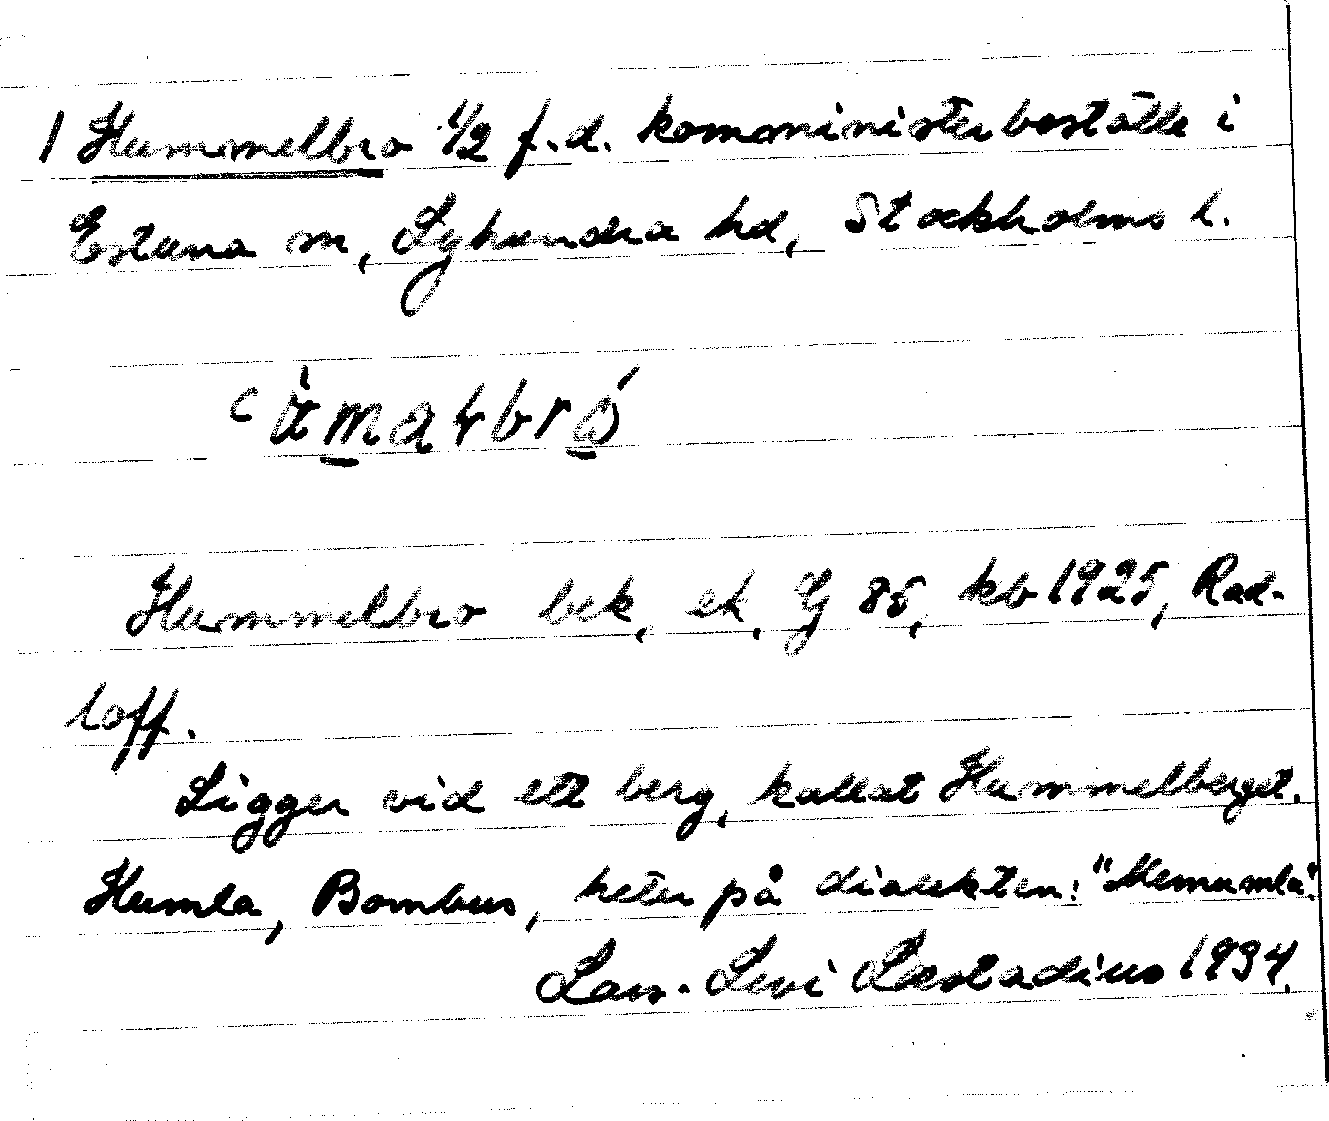 1 Hummelbro 1/2 f.d. komministerboställe i
Estuna sn, Lyhundra hd, Stockholms l.
Hummelbro bek, ek, G 85, kb 1925, Rad-
loff.
Ligger vid ett berg, kallat Hummelberget.
Humla, Bombus, heter på dialekten: "Memumla".
Lars-Levi Læstadius 1934.